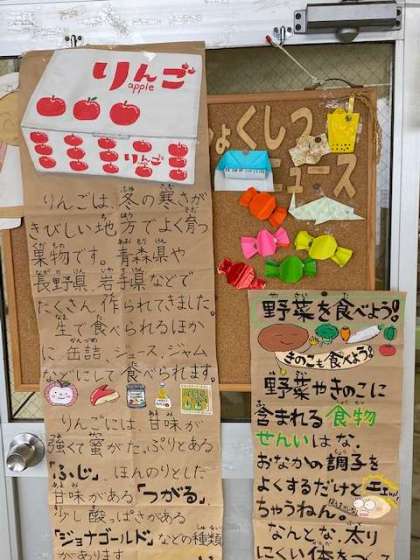 りんご
apple
りんご
りんごは、冬の寒さが
きびしい地方でよく育つ
果物です。青森県や
長野県、岩手県などで
たくさん作られてきました。
生で食べられるほか
に、缶詰、ジュース、ジャム
などにして食べられます。
りんごには、甘味が
強くて蜜がたっぷりとある
「ふじ」、ほんのりとした
甘味がある「つがる」、
少し酸っぱさがある
「ジョナゴールド」などの種類
があります
しょくしつ
ニュース
野菜を食べよう!
きのこも食べよう!
野菜やきのこに
含まれる食物
せんいはな、
おなかの調子を
よくするだけと
ちゃうねん。
なんとな、太り
にくい体をつく